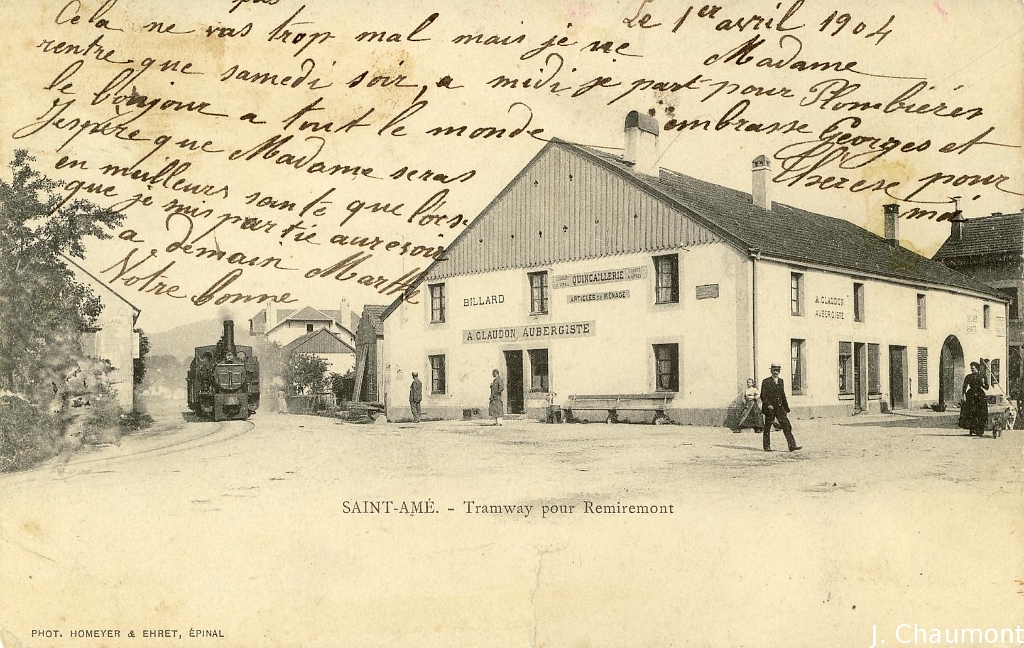 Le 1er avril 1904
Madame
Cela ne vas trop mal mais je ne
pas
rentre que samedi soir, a midi je part pour Plombières
le bonjour a tout le monde embrasse Georges et
Thérèse pour
moi
J'espère que Madame seras
en meilleurs sante que lors
que je suis partie aurevoir
a demain Marthe
Votre bonne
BILLARD
QUINCAILLERIE
ARTICLES DE MÉNAGE
A. CLAUDON AUBERGISTE
A. CLAUDON
AUBERGISTE
SAINT-AMÉ. - Tramway pour Remiremont
PHOT. HOMEYER & EHRET, ÉPINAL
J. Chaumont